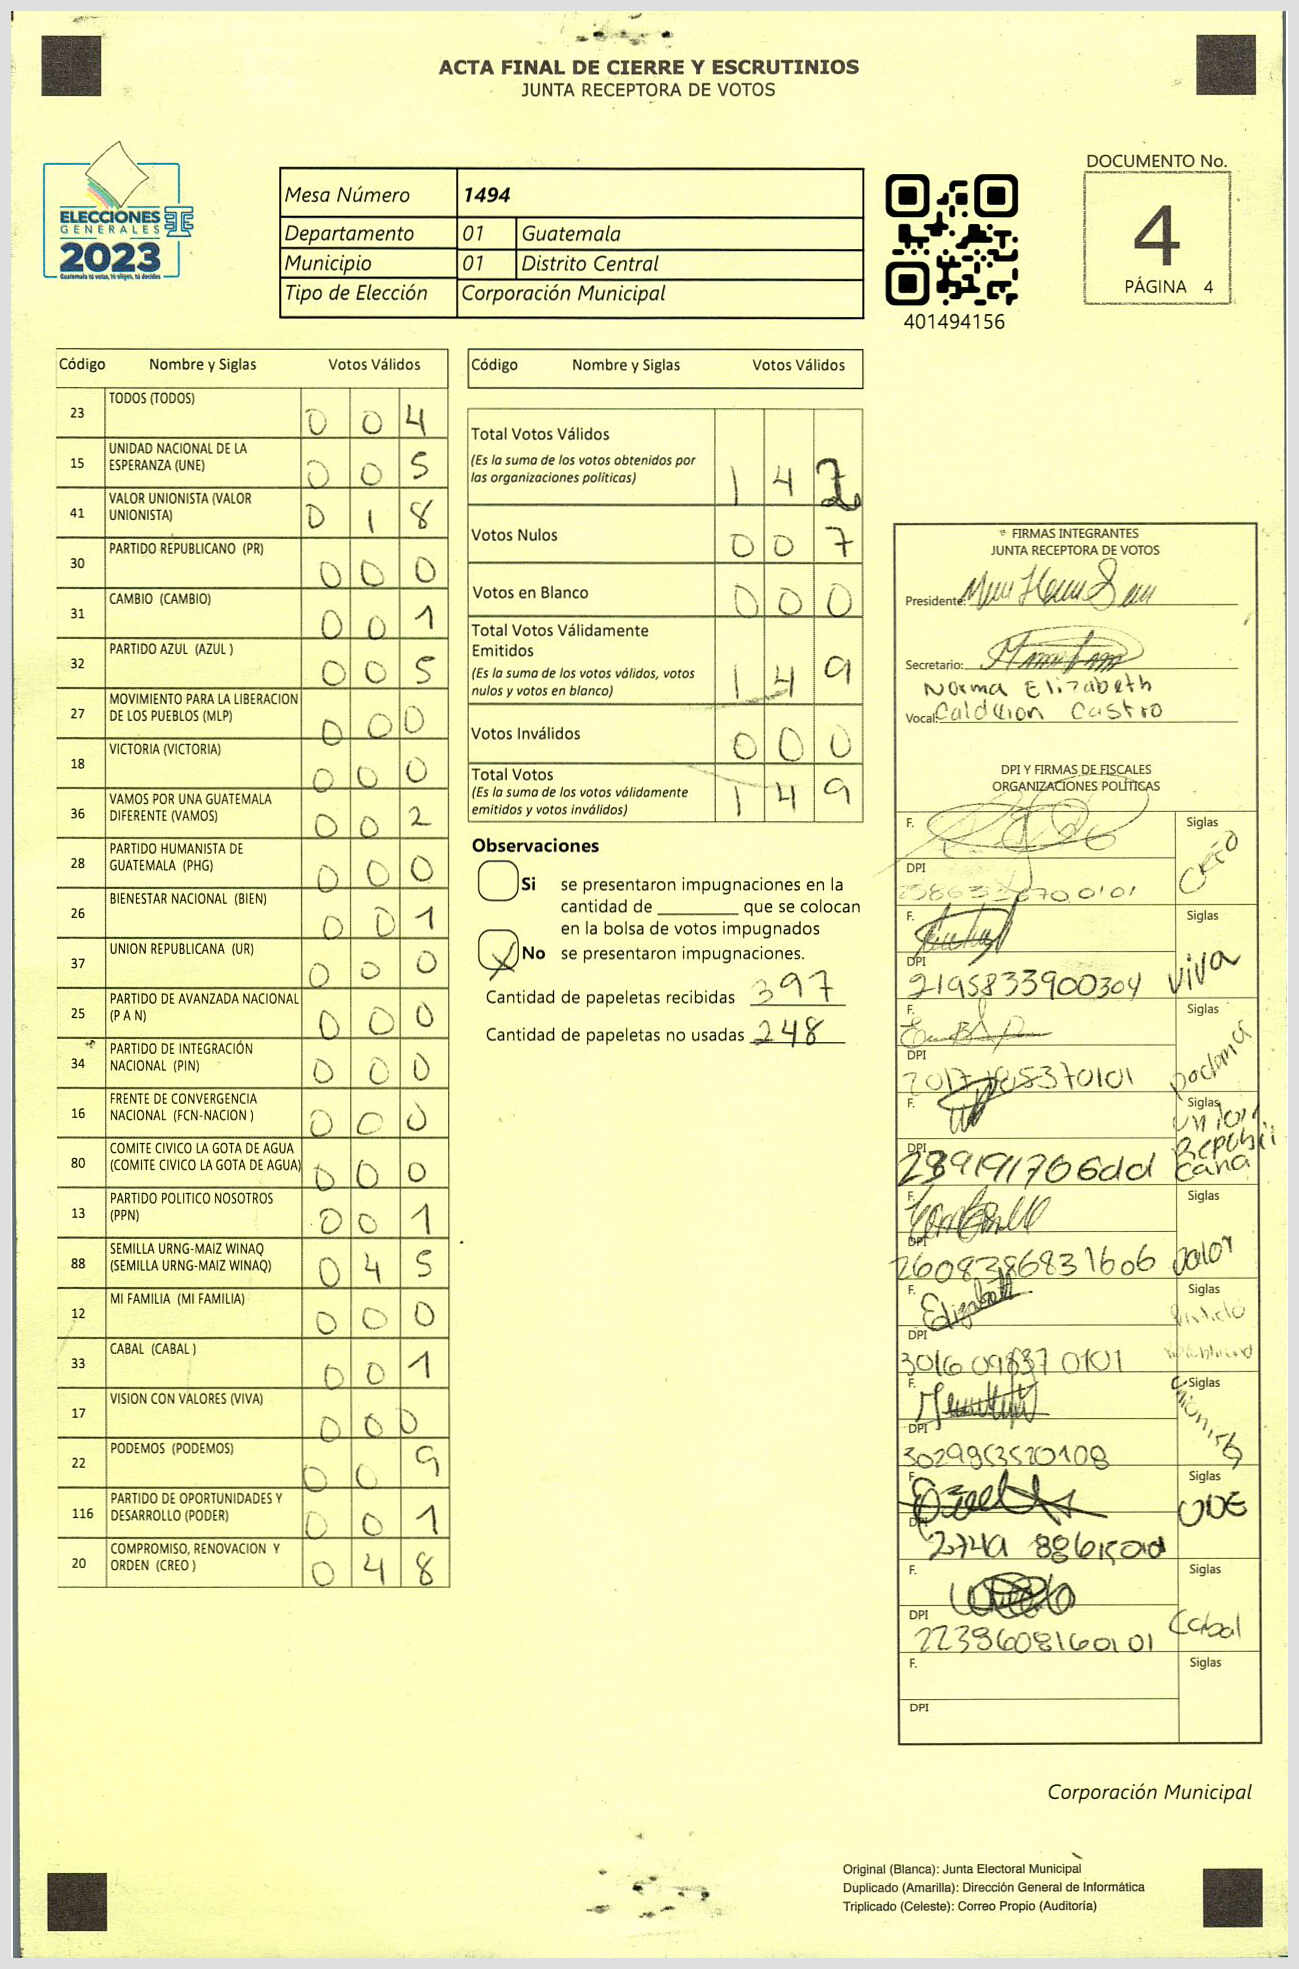 ACTA FINAL DE CIERRE Y ESCRUTINIOS
JUNTA RECEPTORA DE VOTOS
ELECCIONES
GENERALES
2023
Guatemala tú votas, tú eliges, tú decides
Mesa Número 1494
Departamento 01 Guatemala
Municipio 01 Distrito Central
Tipo de Elección Corporación Municipal
401494156
DOCUMENTO No.
4
PÁGINA 4
Código Nombre y Siglas Votos Válidos
23 TODOS (TODOS) 0 0 4
15 UNIDAD NACIONAL DE LA ESPERANZA (UNE) 0 0 5
41 VALOR UNIONISTA (VALOR UNIONISTA) 0 1 8
30 PARTIDO REPUBLICANO (PR) 0 0 0
31 CAMBIO (CAMBIO) 0 0 1
32 PARTIDO AZUL (AZUL ) 0 0 5
27 MOVIMIENTO PARA LA LIBERACION DE LOS PUEBLOS (MLP) 0 0 0
18 VICTORIA (VICTORIA) 0 0 0
36 VAMOS POR UNA GUATEMALA DIFERENTE (VAMOS) 0 0 2
28 PARTIDO HUMANISTA DE GUATEMALA (PHG) 0 0 0
26 BIENESTAR NACIONAL (BIEN) 0 0 1
37 UNION REPUBLICANA (UR) 0 0 0
25 PARTIDO DE AVANZADA NACIONAL (P A N) 0 0 0
34 PARTIDO DE INTEGRACIÓN NACIONAL (PIN) 0 0 0
16 FRENTE DE CONVERGENCIA NACIONAL (FCN-NACION ) 0 0 0
80 COMITE CIVICO LA GOTA DE AGUA (COMITE CIVICO LA GOTA DE AGUA) 0 0 0
13 PARTIDO POLITICO NOSOTROS (PPN) 0 0 1
88 SEMILLA URNG-MAIZ WINAQ (SEMILLA URNG-MAIZ WINAQ) 0 4 5
12 MI FAMILIA (MI FAMILIA) 0 0 0
33 CABAL (CABAL ) 0 0 1
17 VISION CON VALORES (VIVA) 0 0 0
22 PODEMOS (PODEMOS) 0 0 9
116 PARTIDO DE OPORTUNIDADES Y DESARROLLO (PODER) 0 0 1
20 COMPROMISO, RENOVACION Y ORDEN (CREO ) 0 4 8
Código Nombre y Siglas Votos Válidos
Total Votos Válidos 1 4 2
(Es la suma de los votos obtenidos por
las organizaciones políticas)
Votos Nulos 0 0 7
Votos en Blanco 0 0 0
Total Votos Válidamente
Emitidos 1 4 9
(Es la suma de los votos válidos, votos
nulos y votos en blanco)
Votos Inválidos 0 0 0
Total Votos 1 4 9
(Es la suma de los votos válidamente
emitidos y votos inválidos)
Observaciones
Si se presentaron impugnaciones en la
cantidad de ________ que se colocan
en la bolsa de votos impugnados
X No se presentaron impugnaciones.
Cantidad de papeletas recibidas 397
Cantidad de papeletas no usadas 248
FIRMAS INTEGRANTES
JUNTA RECEPTORA DE VOTOS
Presidente:
Secretario:
Norma Elizabeth
Vocal: Calderon Castro
DPI Y FIRMAS DE FISCALES
ORGANIZACIONES POLÍTICAS
F. Siglas
DPI Creo
F. Siglas
DPI
2195833900304 Viva
F. Siglas
DPI
F. Siglas
DPI Union Republicana
F. Siglas
DPI
2608386831606 Valor
F. Elizabeth Siglas
DPI
3016098370101
F. Siglas
DPI
3029953520108
F. Siglas
DPI
F. Siglas
DPI
2239608160101 Cabal
F. Siglas
DPI
Corporación Municipal
Original (Blanca): Junta Electoral Municipal
Duplicado (Amarilla): Dirección General de Informática
Triplicado (Celeste): Correo Propio (Auditoría)